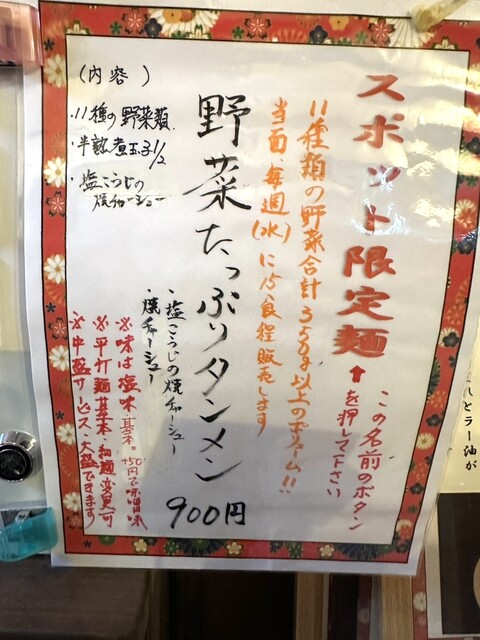 スポット限定麺
↑この名前のボタン
を押して下さい
11種類の野菜合計350g以上のボリューム!!
当面、毎週(水)に15食程販売します
野菜たっぷりタンメン
900円
・塩こうじの焼チャーシュー
・焼チャーシュー
(内容)
・11種の野菜類
・半熟煮玉子1/2
・塩こうじの
焼チャーシュー
※味は塩味基本。+50円で味噌味
※平打麺基本・細麺変更可
※中盛サービス・大盛できます
とラー油が